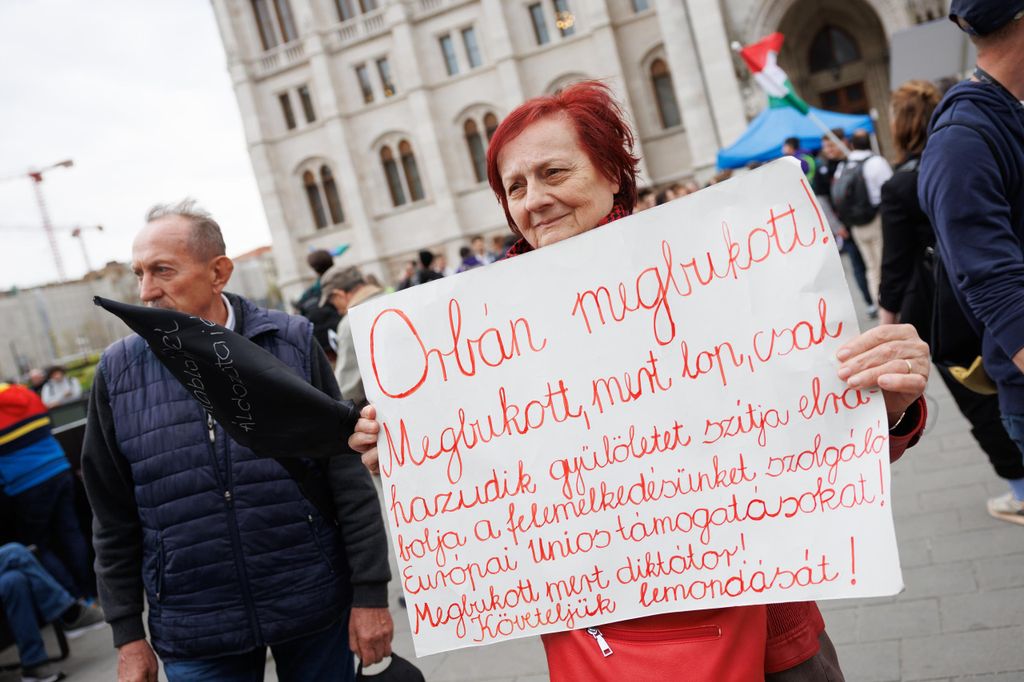 Orbán megbukott!
Megbukott, mert lop, csal
hazudik gyűlöletet szítja elrá-
bolja a felemelkedésünket szolgáló
Európai Unios támogatásokat!
Megbukott mert diktátor!
Követeljük lemondását!